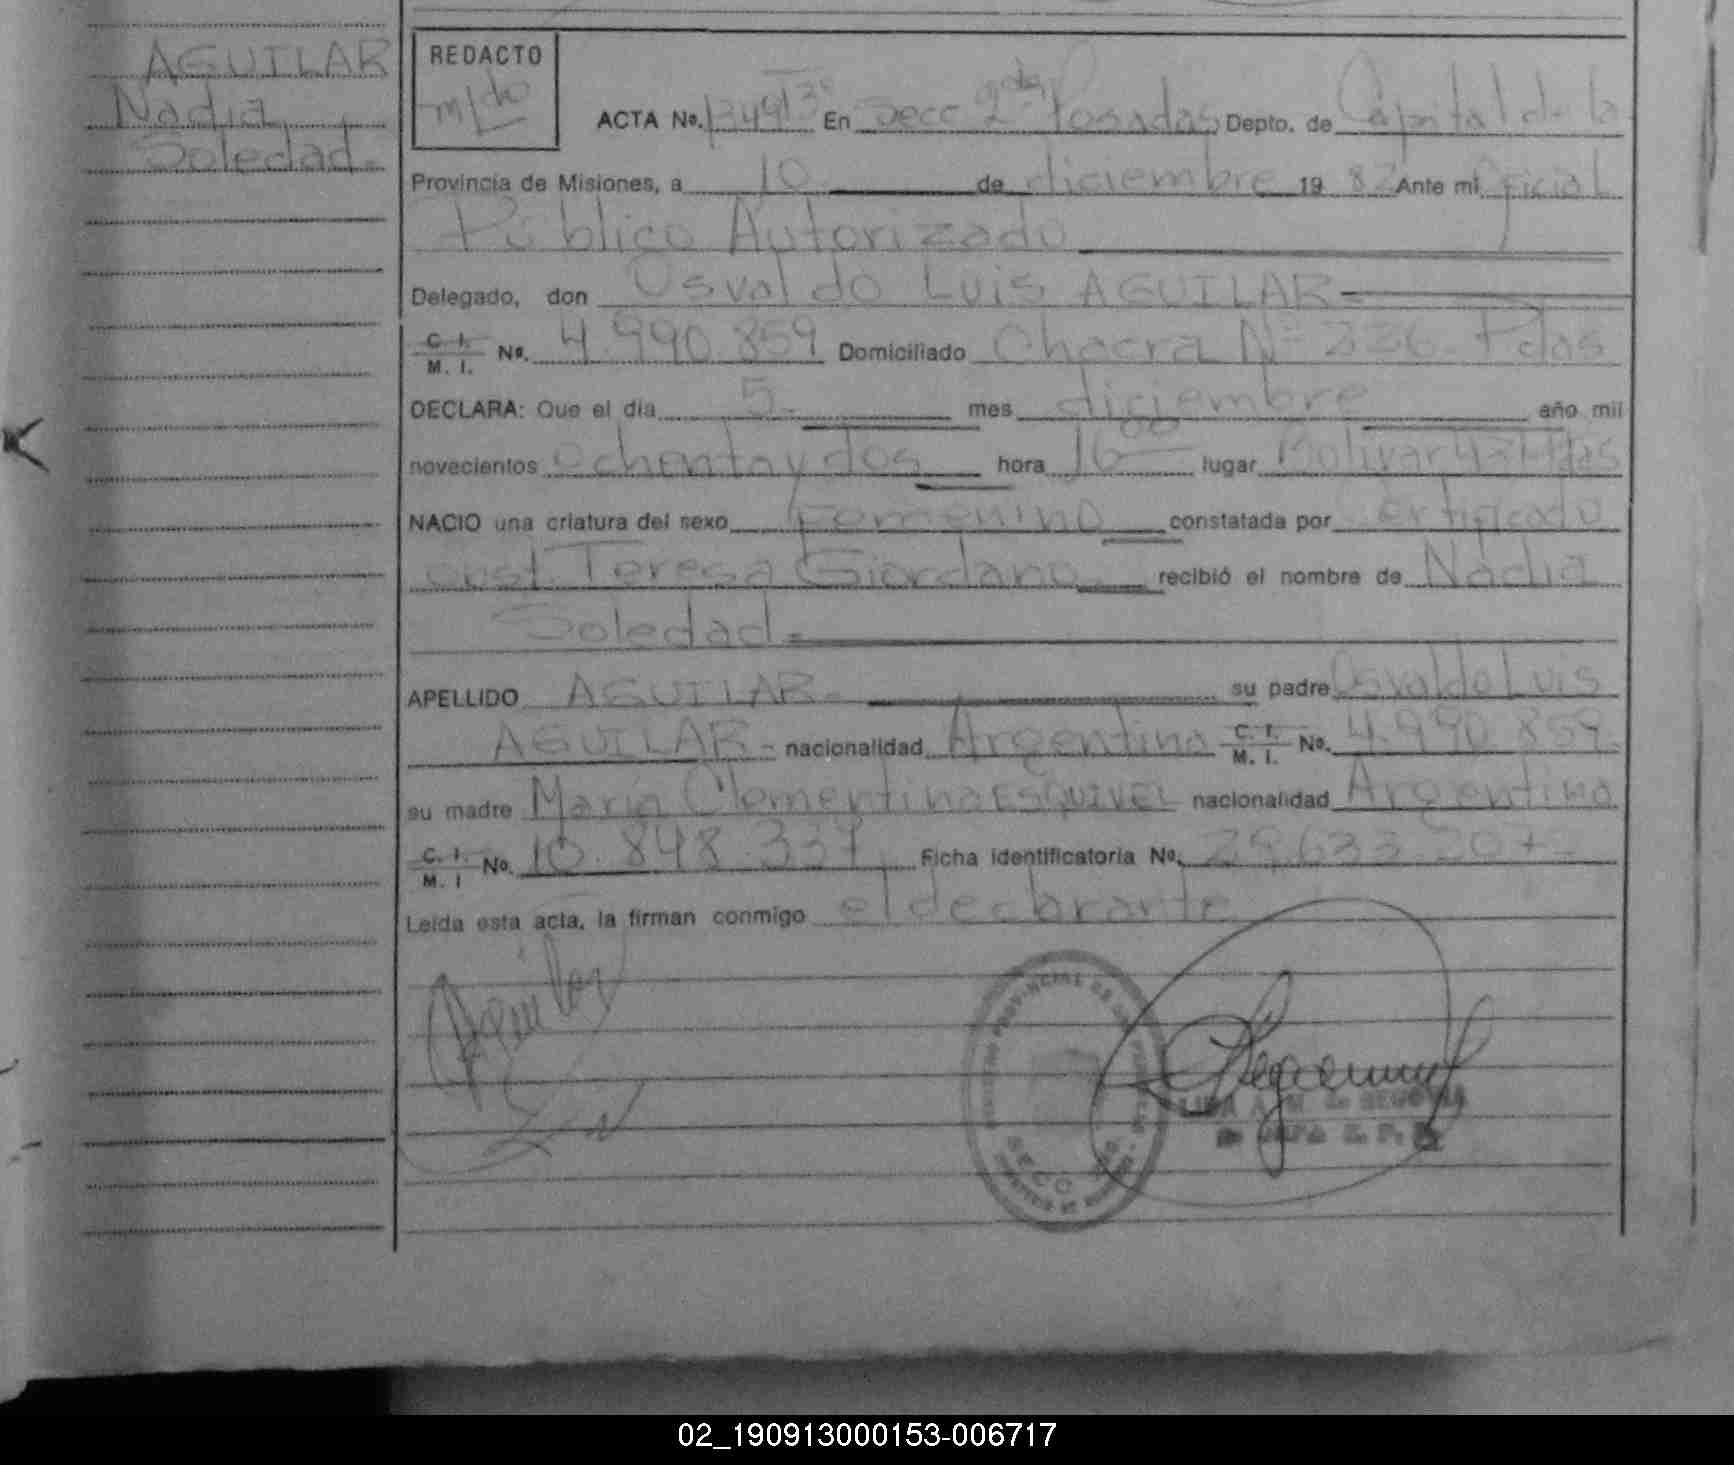 AGUILAR
Nadia
Soledad.
REDACTO
ACTA No. En Secc 2da Posadas Depto. de Capital de la
Provincia de Misiones, a 10 de diciembre 19 82 Ante mi Oficial
Público Autorizado
Delegado, don Osvaldo Luis AGUILAR
C. I. M. I. No. 4.990.859 Domiciliado Chacra Nº 236 Pdas
DECLARA: Que el día 5 mes diciembre año mil
novecientos ochenta y dos hora 16 00 lugar Bolivar
NACIO una criatura del sexo Femenino constatada por certificado
obst. Teresa Giordano recibió el nombre de Nadia
Soledad
APELLIDO AGUILAR su padre Osvaldo Luis
AGUILAR nacionalidad Argentina C. I. M. I. No. 4.990.859
su madre María Clementina ESQUIVEL nacionalidad Argentina
C. I. M. I No. 10.848.337 Ficha identificatoria No. 29.633.207
Leída esta acta, la firman conmigo el declarante
Aguilar
SEGOVIA
02_190913000153-006717